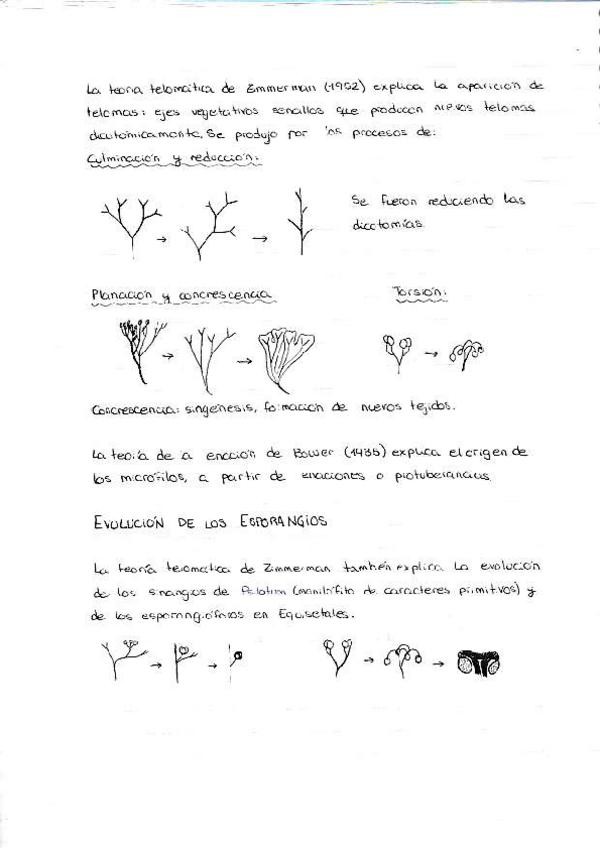 La teoría telomática de Zimmerman (1952) explica la aparición de
telomas: ejes vegetativos sencillos que producen nuevos telomas
dicotómicamente. Se produjo por los procesos de:
Culminación y reducción:
Se fueron reduciendo las
dicotomías
Planación y concrescencia
Torsión:
Concrescencia: singénesis, formación de nuevos tejidos.
La teoría de la enación de Bower (1935) explica el origen de
los microfilos, a partir de enaciones o protuberancias
EVOLUCIÓN DE LOS ESPORANGIOS
La teoría telomática de Zimmerman también explica la evolución
de los sinangios de Psilotum (monilófito de caracteres primitivos) y
de los esporangióforos en Equisetales.